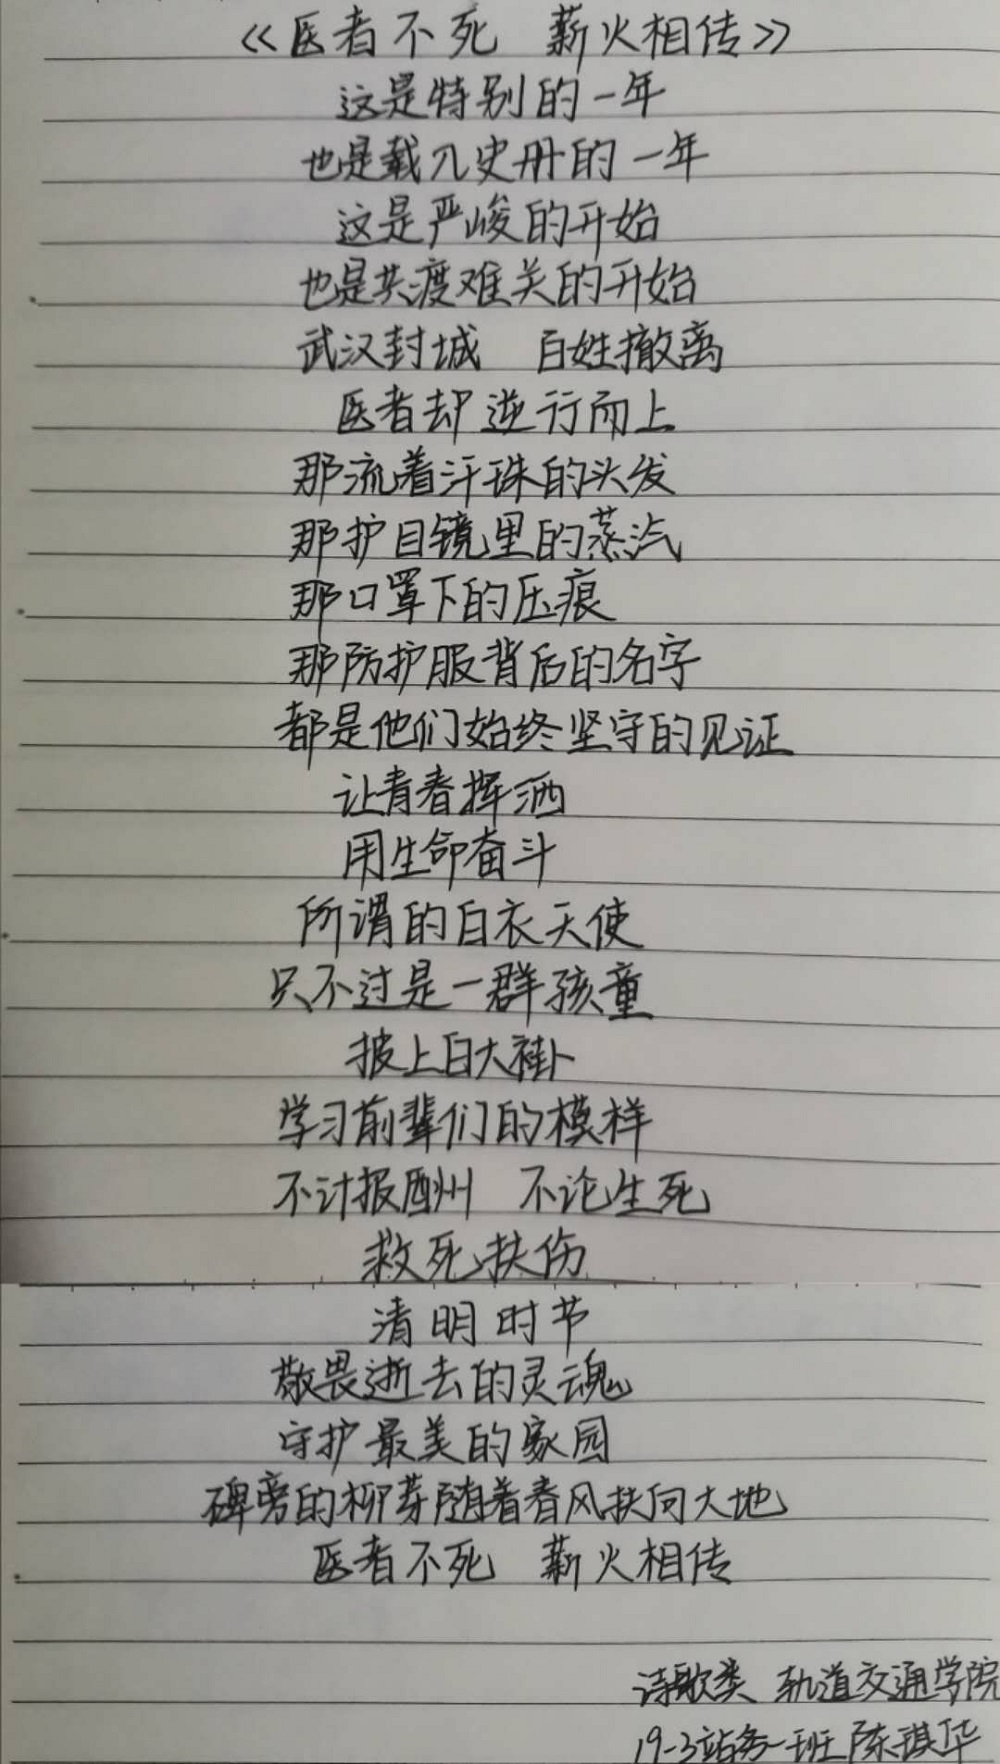 《医者不死 薪火相传》
这是特别的一年
也是载入史册的一年
这是严峻的开始
也是共渡难关的开始
武汉封城 百姓撤离
医者却逆行而上
那流着汗珠的头发
那护目镜里的蒸汽
那口罩下的压痕
那防护服背后的名字
都是他们始终坚守的见证
让青春挥洒
用生命奋斗
所谓的白衣天使
只不过是一群孩童
披上白大褂
学习前辈们的模样
不计报酬 不论生死
救死扶伤
清明时节
敬畏逝去的灵魂
守护最美的家园
碑旁的柳芽随着春风扶向大地
医者不死 薪火相传
诗歌类 轨道交通学院
19-3站务一班 陈琪华